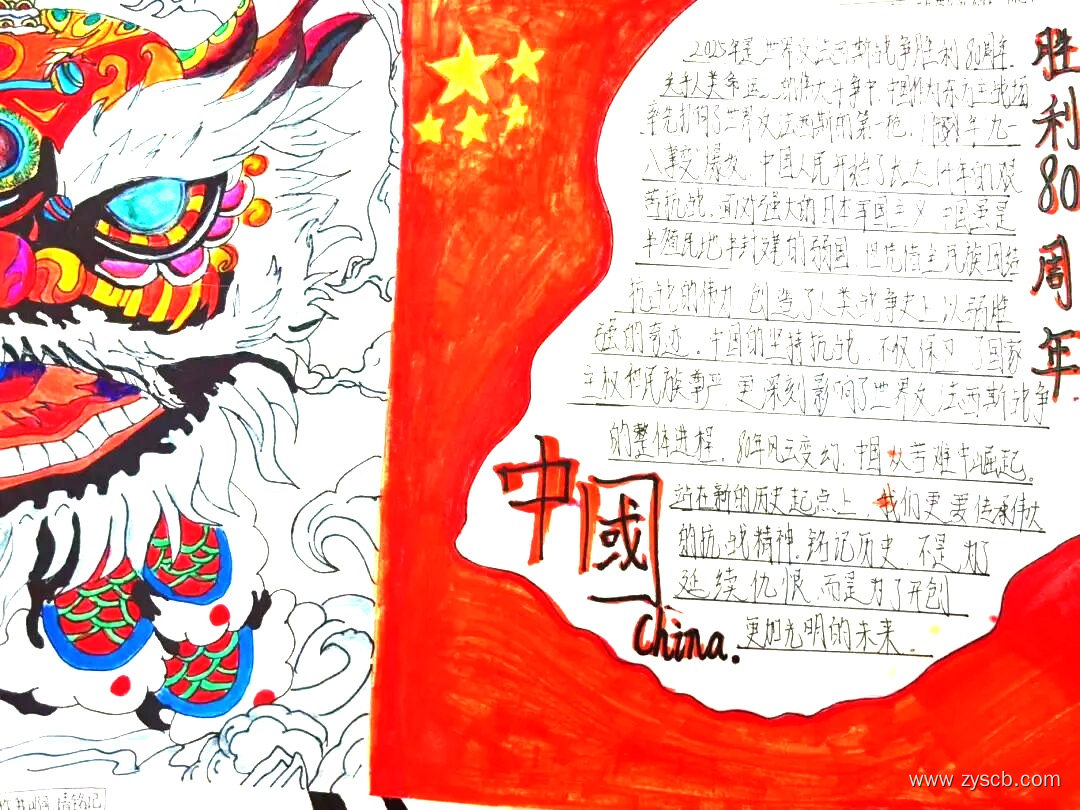 2025年是世界反法西斯战争胜利80周年.
关乎人类命运 的伟大斗争中 中国作为东方主战场
率先打响了世界反法西斯的第一枪. 1931年九一
八事变爆发. 中国人民开始了长达14年的艰
苦抗战. 面对强大的日本军国主义 中国虽是
半殖民地半封建的弱国 但凭借全民族团结
抗战的伟力 创造了人类战争史上以弱胜
强的奇迹. 中国的坚持抗战 不仅保卫了国家
主权和民族尊严 更深刻影响了世界反法西斯战争
的整体进程. 80年风云变幻. 中国从苦难中崛起.
站在新的历史起点上 我们更要传承伟大
的抗战精神. 铭记历史 不是为了
延续仇恨 而是为了开创
更加光明的未来.
胜利80周年.
中國
China.
请铭记
www.zyscb.com